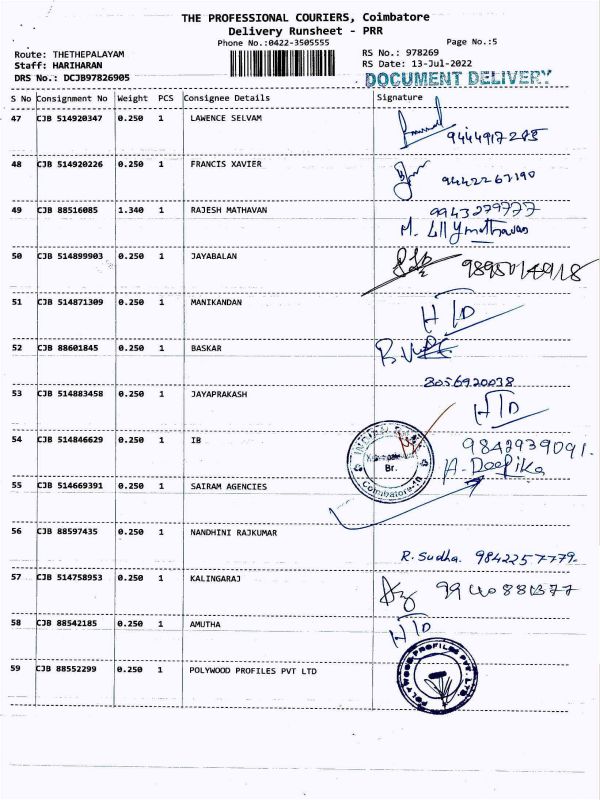 THE PROFESSIONAL COURIERS, Coimbatore
Delivery Runsheet - PRR
Phone No.:0422-3505555 Page No.:5
Route: THETHEPALAYAM RS No.: 978269
Staff: HARIHARAN RS Date: 13-Jul-2022
DRS No.: DCJB97826905 DOCUMENT DELIVERY
S No Consignment No Weight PCS Consignee Details Signature
47 CJB 514920347 0.250 1 LAWENCE SELVAM
48 CJB 514920226 0.250 1 FRANCIS XAVIER
49 CJB 88516085 1.340 1 RAJESH MATHAVAN 9943279777
50 CJB 514899903 0.250 1 JAYABALAN
51 CJB 514871309 0.250 1 MANIKANDAN H/D
52 CJB 88601845 0.250 1 BASKAR
8056920038
53 CJB 514883458 0.250 1 JAYAPRAKASH H/D
54 CJB 514846629 0.250 1 IB INDIAN Br. Coimbatore-18 9842939091.
A. Deepika
55 CJB 514669391 0.250 1 SAIRAM AGENCIES
56 CJB 88597435 0.250 1 NANDHINI RAJKUMAR
R. Sudha. 9842257779.
57 CJB 514758953 0.250 1 KALINGARAJ
58 CJB 88542185 0.250 1 AMUTHA H/D
59 CJB 88552299 0.250 1 POLYWOOD PROFILES PVT LTD POLYWOOD PROFILES PVT. LTD.